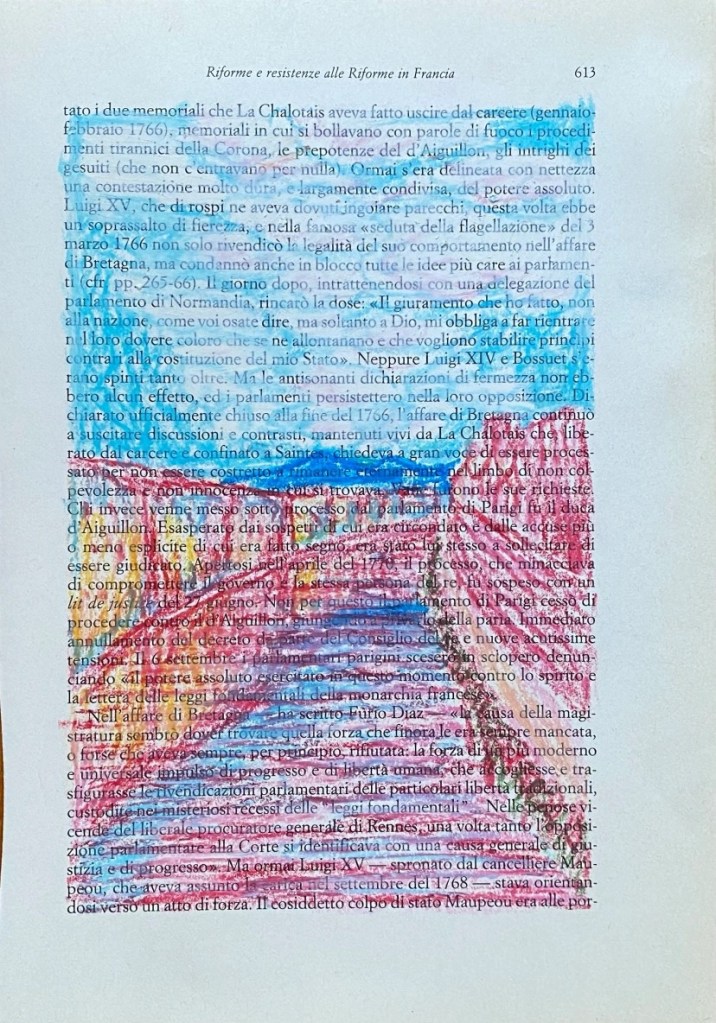 Riforme e resistenze alle Riforme in Francia 613
tato i due memoriali che La Chalotais aveva fatto uscire dal carcere (gennaio-
febbraio 1766), memoriali in cui si bollavano con parole di fuoco i procedi-
menti tirannici della Corona, le prepotenze del d'Aiguillon, gli intrighi dei
gesuiti (che non c'entravano per nulla). Ormai s'era delineata con nettezza
una contestazione molto dura, e largamente condivisa, del potere assoluto.
Luigi XV, che di rospi ne aveva dovuti ingoiare parecchi, questa volta ebbe
un soprassalto di fierezza, e nella famosa «seduta della flagellazione» del 3
marzo 1766 non solo rivendicò la legalità del suo comportamento nell'affare
di Bretagna, ma condannò anche in blocco tutte le idee più care ai parlamen-
ti (cfr. pp. 265-66). Il giorno dopo, intrattenendosi con una delegazione del
parlamento di Normandia, rincarò la dose: «Il giuramento che ho fatto, non
alla nazione, come voi osate dire, ma soltanto a Dio, mi obbliga a far rientrare
nel loro dovere coloro che se ne allontanano e che vogliono stabilire principi
contrari alla costituzione del mio Stato». Neppure Luigi XIV e Bossuet s'e-
rano spinti tanto oltre. Ma le altisonanti dichiarazioni di fermezza non eb-
bero alcun effetto, ed i parlamenti persistettero nella loro opposizione. Di-
chiarato ufficialmente chiuso alla fine del 1766, l'affare di Bretagna continuò
a suscitare discussioni e contrasti, mantenuti vivi da La Chalotais che, libe-
rato dal carcere e confinato a Saintes, chiedeva a gran voce di essere proces-
sato per non essere costretto a rimanere eternamente nel limbo di non col-
pevolezza e non innocenza in cui si trovava. Vane furono le sue richieste.
Chi invece venne messo sotto processo dal parlamento di Parigi fu il duca
d'Aiguillon. Esasperato dai sospetti di cui era circondato e dalle accuse più
o meno esplicite di cui era fatto segno, era stato lui stesso a sollecitare di
essere giudicato. Apertosi nell'aprile del 1770, il processo, che minacciava
di compromettere il governo e la stessa persona del re, fu sospeso con un
lit de justice del 27 giugno. Non per questo il parlamento di Parigi cessò di
procedere contro il d'Aiguillon, giungendo a privarlo della paria. Immediato
annullamento del decreto da parte del Consiglio del re e nuove acutissime
tensioni. Il 6 settembre i parlamentari parigini scesero in sciopero denun-
ciando «il potere assoluto esercitato in questo momento contro lo spirito e
la lettera delle leggi fondamentali della monarchia francese».
Nell'affare di Bretagna — ha scritto Furio Diaz — «la causa della magi-
stratura sembrò dover trovare quella forza che finora le era sempre mancata,
o forse che aveva sempre, per principio, rifiutata: la forza di un più moderno
e universale impulso di progresso e di libertà umana, che accogliesse e tra-
sfigurasse le rivendicazioni parlamentari delle particolari libertà tradizionali,
custodite nei misteriosi recessi delle "leggi fondamentali". Nelle penose vi-
cende del liberale procuratore generale di Rennes, una volta tanto l'opposi-
zione parlamentare alla Corte si identificava con una causa generale di giu-
stizia e di progresso». Ma ormai Luigi XV — spronato dal cancelliere Mau-
peou, che aveva assunto la carica nel settembre del 1768 — stava orientan-
dosi verso un atto di forza. Il cosiddetto colpo di stato Maupeou era alle por-